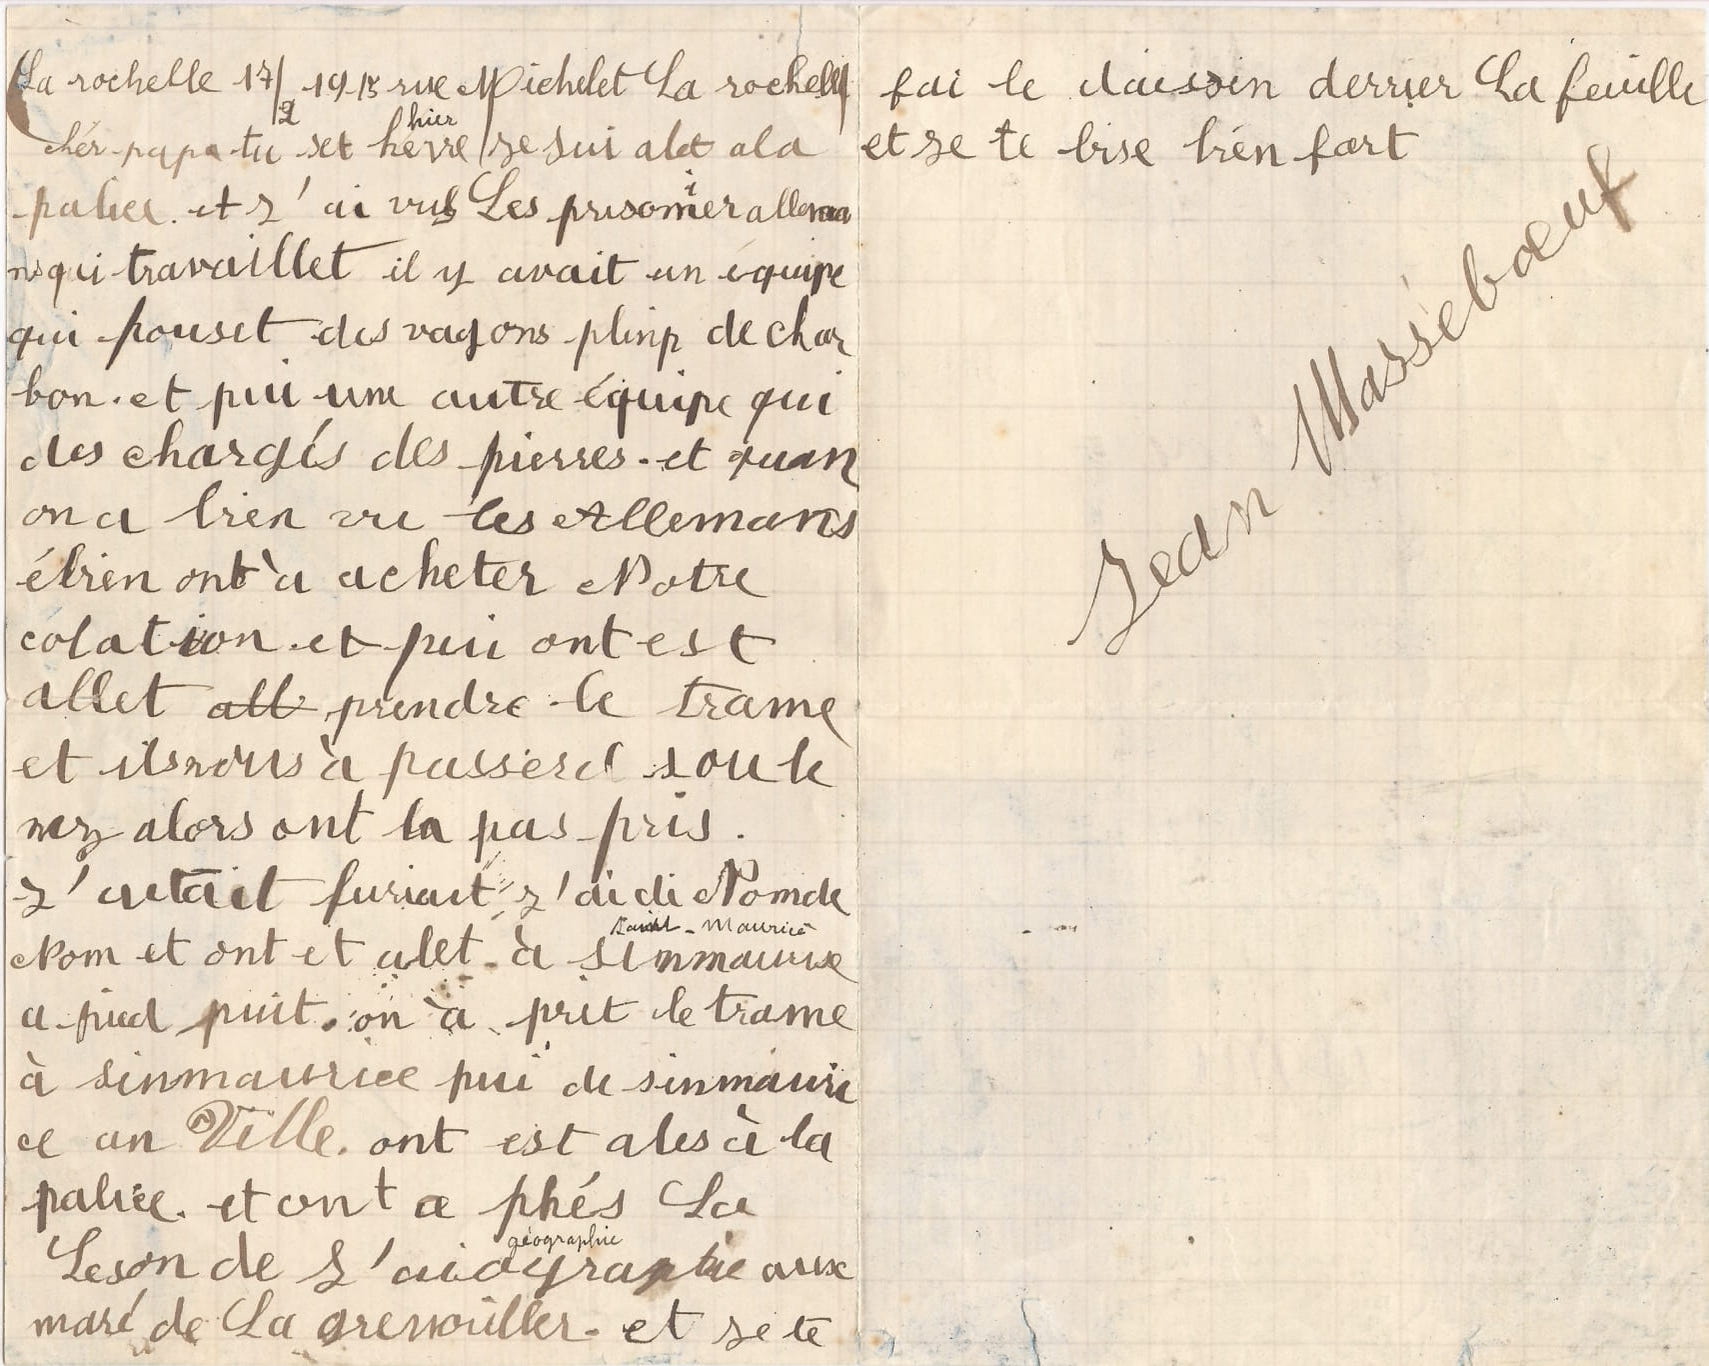 La rochelle 17/2 1915 rue Michelet La rochelle
chér papa tu set herre hier je sui alet a la
palice. et j'ai vus Les prisomier allema
ns qui travaillet il y avait un équipe
qui pouset des vagons plinp de char
bon. et pui une autre équipe qui
des chargés des pierres. et quan
on a bien vu les Allemans
ébien ont à acheter Notre
colation. et pui ont est
allet all prendre le trame
et ils nous à passerd sou le
nez alors ont la pas pris.
j'autait furiait j'ai di Nom de
Nom et ont et alet à sinmaurise Saint-Maurice
a pied puit. on à prit le trame
à sinmauricee pui de sinmauri
ce an Ville. ont est ales à la
palice. et ont a phés La
Leson de j'aiographie géographie aux
maré de La grenouiller. et je te
fai le daissin derrier La feuille
et je te bise bien fort
Jean Masseboeuf